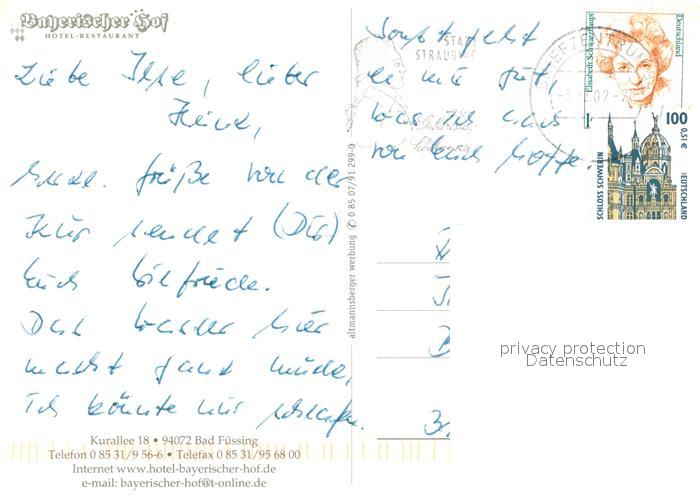 Bayerischer Hof
HOTEL-RESTAURANT
Liebe Ilse, lieber
Heinz,
Grüße von der
Kur sendet (Dir)
Euch Wilfriede.
Das Wasser hier
macht ganz müde,
Ich könnte nur schlafen.
Kurallee 18 • 94072 Bad Füssing
Telefon 0 85 31/9 56-6 • Telefax 0 85 31/95 68 00
Internet www.hotel-bayerischer-hof.de
e-mail: bayerischer-hof@t-online.de
altmannsberger werbung 0 85 07/91 299-0
Sonst geht
es mir gut,
was ich auch
von Euch hoffe.
STADT
STRAUBING
BRIEFZENTRUM
Elisabeth Schwarzhaupt
Deutschland
100
0,51 €
SCHLOSS SCHWERIN
DEUTSCHLAND
privacy protection
Datenschutz